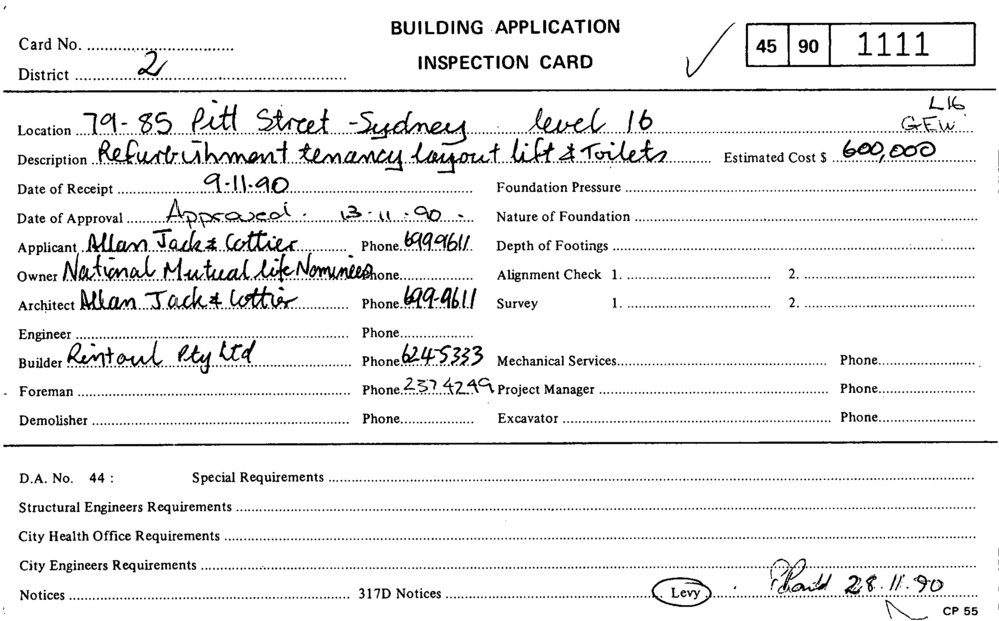 BUILDING APPLICATION
INSPECTION CARD
Card No.
District 2
45 90 1111
L16
GEW
Location 79-85 Pitt Street - Sydney level 16
Description Refurbishment tenancy layout lift & Toilets Estimated Cost $ 600,000
Date of Receipt 9-11-90 Foundation Pressure
Date of Approval Approved. 13-11-90 Nature of Foundation
Applicant Allan Jack & Cottier Phone 6999611 Depth of Footings
Owner National Mutual life Nominees Phone Alignment Check 1. 2.
Architect Allan Jack & Cottier Phone 699-9611 Survey 1. 2.
Engineer Phone
Builder Rintoul Pty Ltd Phone 624-5333 Mechanical Services Phone
Foreman Phone 237 4249 Project Manager Phone
Demolisher Phone Excavator Phone
D.A. No. 44 : Special Requirements
Structural Engineers Requirements
City Health Office Requirements
City Engineers Requirements
Notices 317D Notices Levy 28.11.90
CP 55